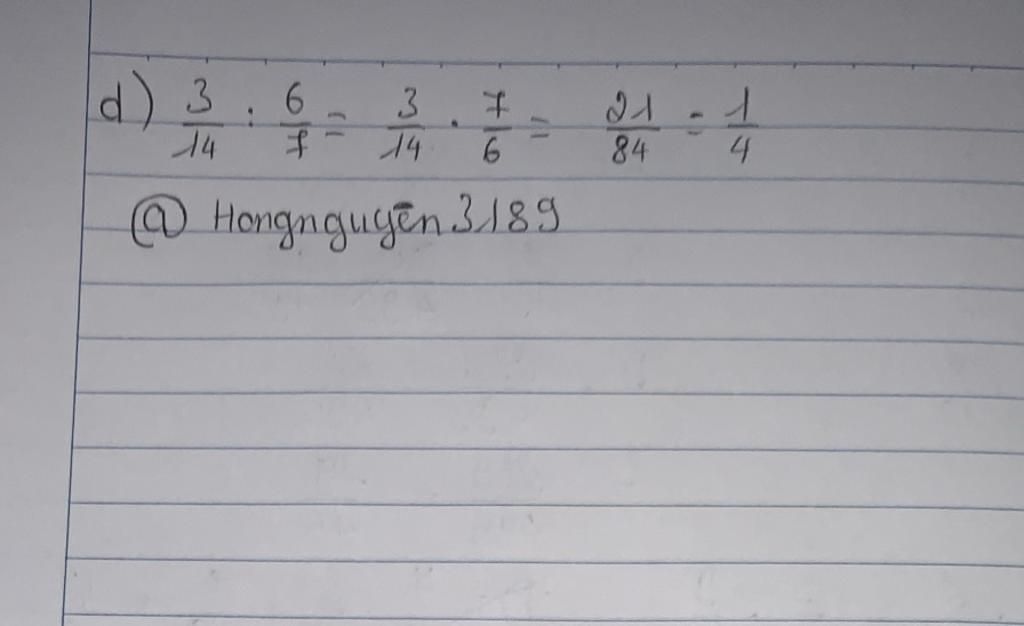 d) 3/14 : 6/7 = 3/14 . 7/6 = 21/84 = 1/4
@ Hongnguyēn3189